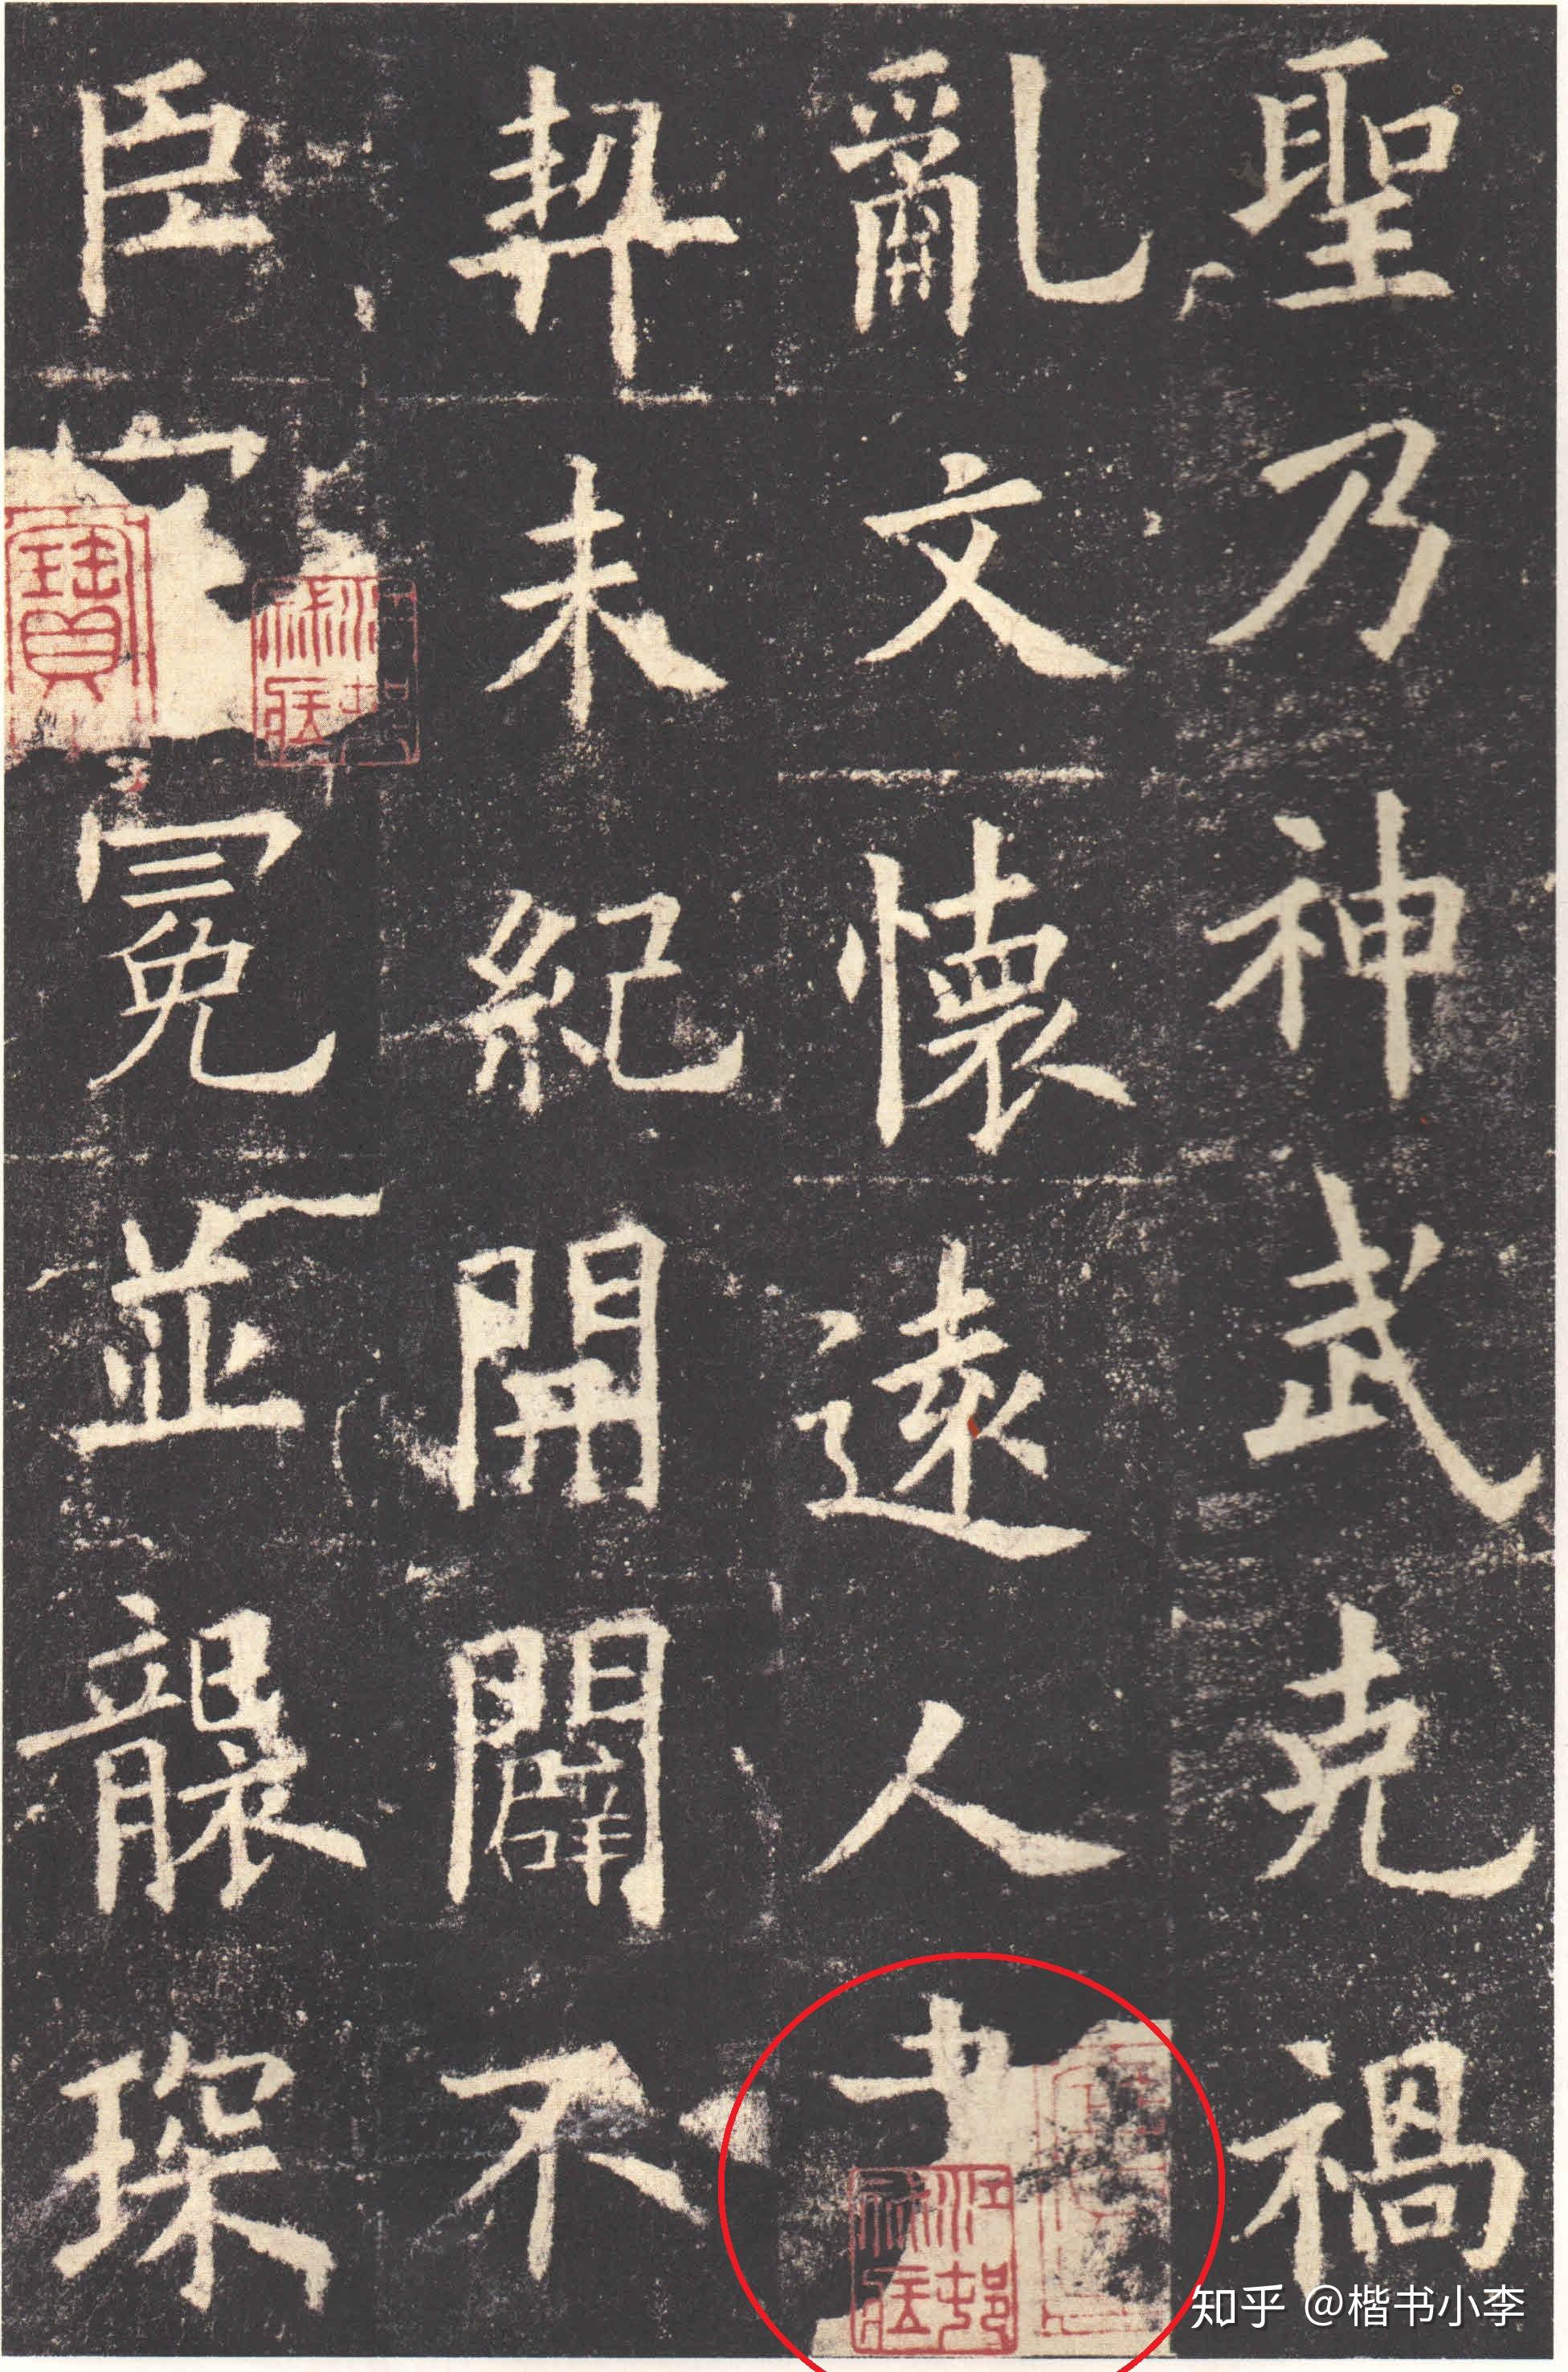 聖乃神武克禍
亂文懷遠人
契未紀開闢不
臣冠冕並襲琛
知乎 @楷书小李